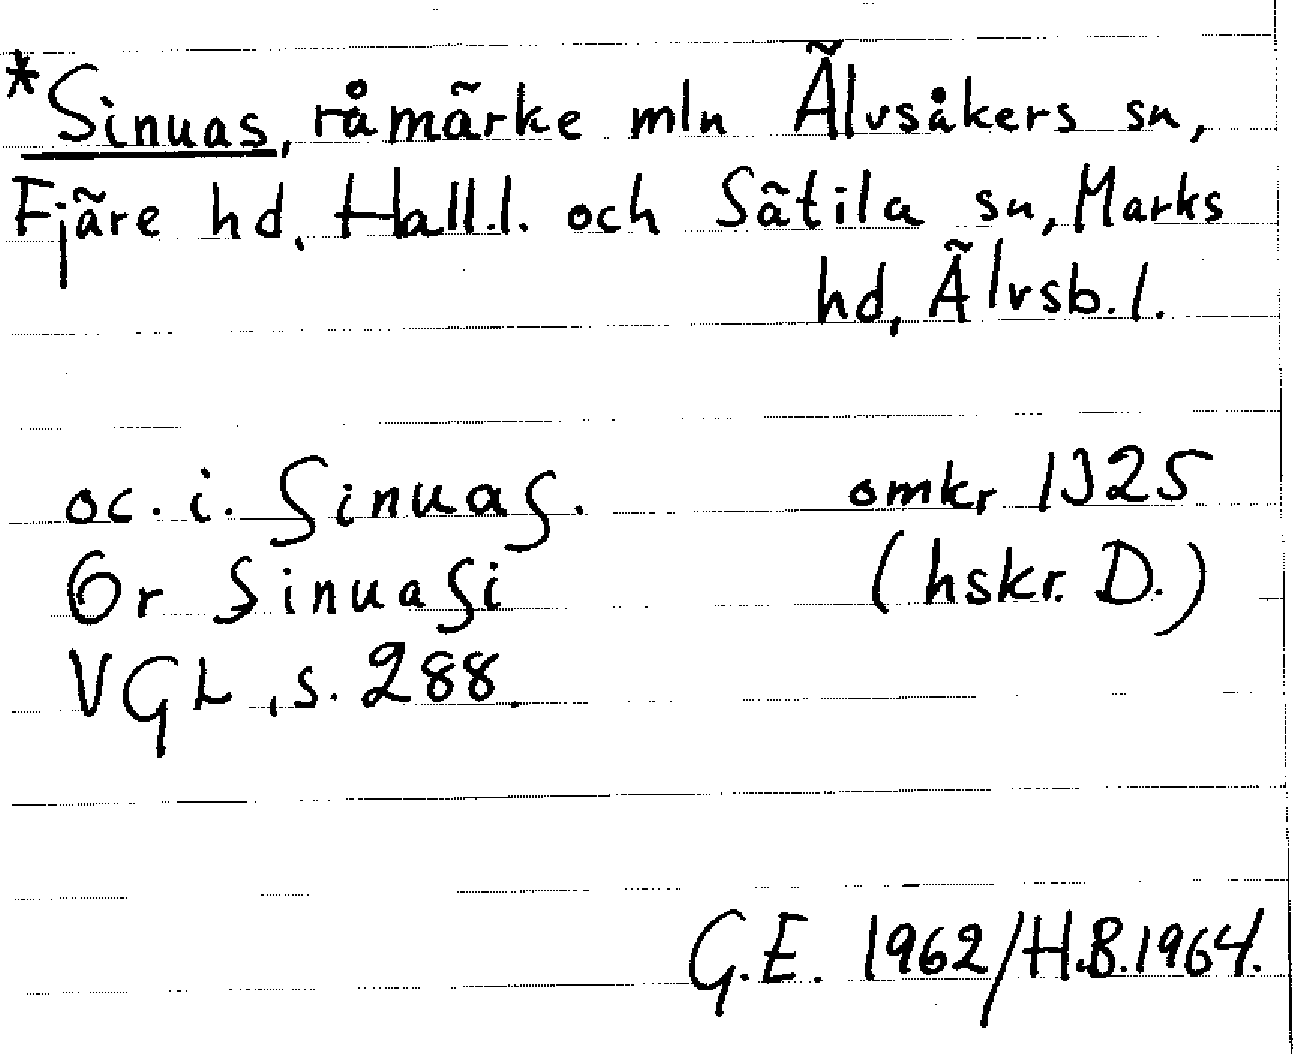 *Sinuas, råmärke mln Älvsåkers sn,
Fjäre hd, Hall.l. och Sätila sn, Marks
hd, Älvsb.l.
oc. i. Sinuas. omkr 1325
Or Sinuasi (hskr. D.)
VGL, s. 288.
G.E. 1962/H.B.1964.